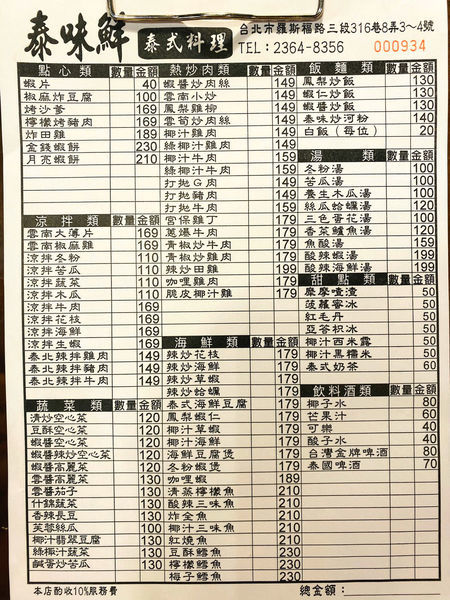 泰味鮮
泰式料理
台北市羅斯福路三段316巷8弄3～4號
TEL：2364-8356
000934
點心類 數量 金額
蝦片 40
椒麻炸豆腐 100
烤沙爹 169
檸檬烤豬肉 169
炸田雞 189
金錢蝦餅 230
月亮蝦餅 210
涼拌類 數量 金額
雲南大薄片 169
雲南椒麻雞 169
涼拌冬粉 110
涼拌苦瓜 110
涼拌蔬菜 110
涼拌木瓜 110
涼拌牛肉 169
涼拌花枝 169
涼拌海鮮 169
涼拌生蝦 169
泰北辣拌雞肉 149
泰北辣拌豬肉 149
泰北辣拌牛肉 149
蔬菜類 數量 金額
清炒空心菜 120
豆酥空心菜 120
蝦醬空心菜 120
蝦醬辣炒空心菜 120
蝦醬高麗菜 130
雲醬高麗菜 130
雲醬茄子 130
什錦蔬菜 130
香辣長豆 130
芙蓉絲瓜 100
椰汁翡翠豆腐 130
綠椰汁蔬菜 130
鹹蛋炒苦瓜 130
熱炒肉類 數量 金額
蝦醬炒肉絲 149
雲南小炒 149
鳳梨雞柳 149
雲筍炒肉絲 149
椰汁雞肉 149
綠椰汁雞肉 149
椰汁牛肉 159
綠椰汁牛肉 159
打拋G肉 149
打拋豬肉 149
打拋牛肉 149
宮保雞丁 179
蔥爆牛肉 179
青椒炒牛肉 179
青椒炒雞肉 179
辣炒田雞 199
咖哩雞 179
脆皮椰汁雞 179
海鮮類 數量 金額
辣炒花枝 179
辣炒海鮮 179
辣炒草蝦 179
辣炒蛤蠣 179
泰式海鮮豆腐 179
鳳梨蝦仁 179
椰汁草蝦 179
椰汁海鮮 179
海鮮豆腐煲 179
冬粉蝦煲 179
咖哩蝦 189
清蒸檸檬魚 210
酸辣三味魚 210
炸全魚 210
椰汁三味魚 210
紅燒魚 210
豆酥鱈魚 230
檸檬鱈魚 230
梅子鱈魚 230
飯麵類 數量 金額
鳳梨炒飯 130
蝦仁炒飯 130
蝦醬炒飯 130
泰味炒河粉 140
白飯（每位） 20
湯類 數量 金額
冬粉湯 100
苦瓜湯 100
養生木瓜湯 100
絲瓜蛤蠣湯 120
三色蛋花湯 100
香菜鱸魚湯 120
魚酸湯 159
酸辣蝦湯 199
酸辣海鮮湯 199
甜點類 數量 金額
摩摩喳喳 50
菠蘿蜜冰 50
紅毛丹 50
亞答枳冰 50
椰汁西米露 50
椰汁黑糯米 50
泰式奶茶 60
飲料酒類 數量 金額
椰子水 80
芒果汁 60
可樂 40
酸子水 40
台灣金牌啤酒 80
泰國啤酒 70
本店酌收10%服務費
總金額：